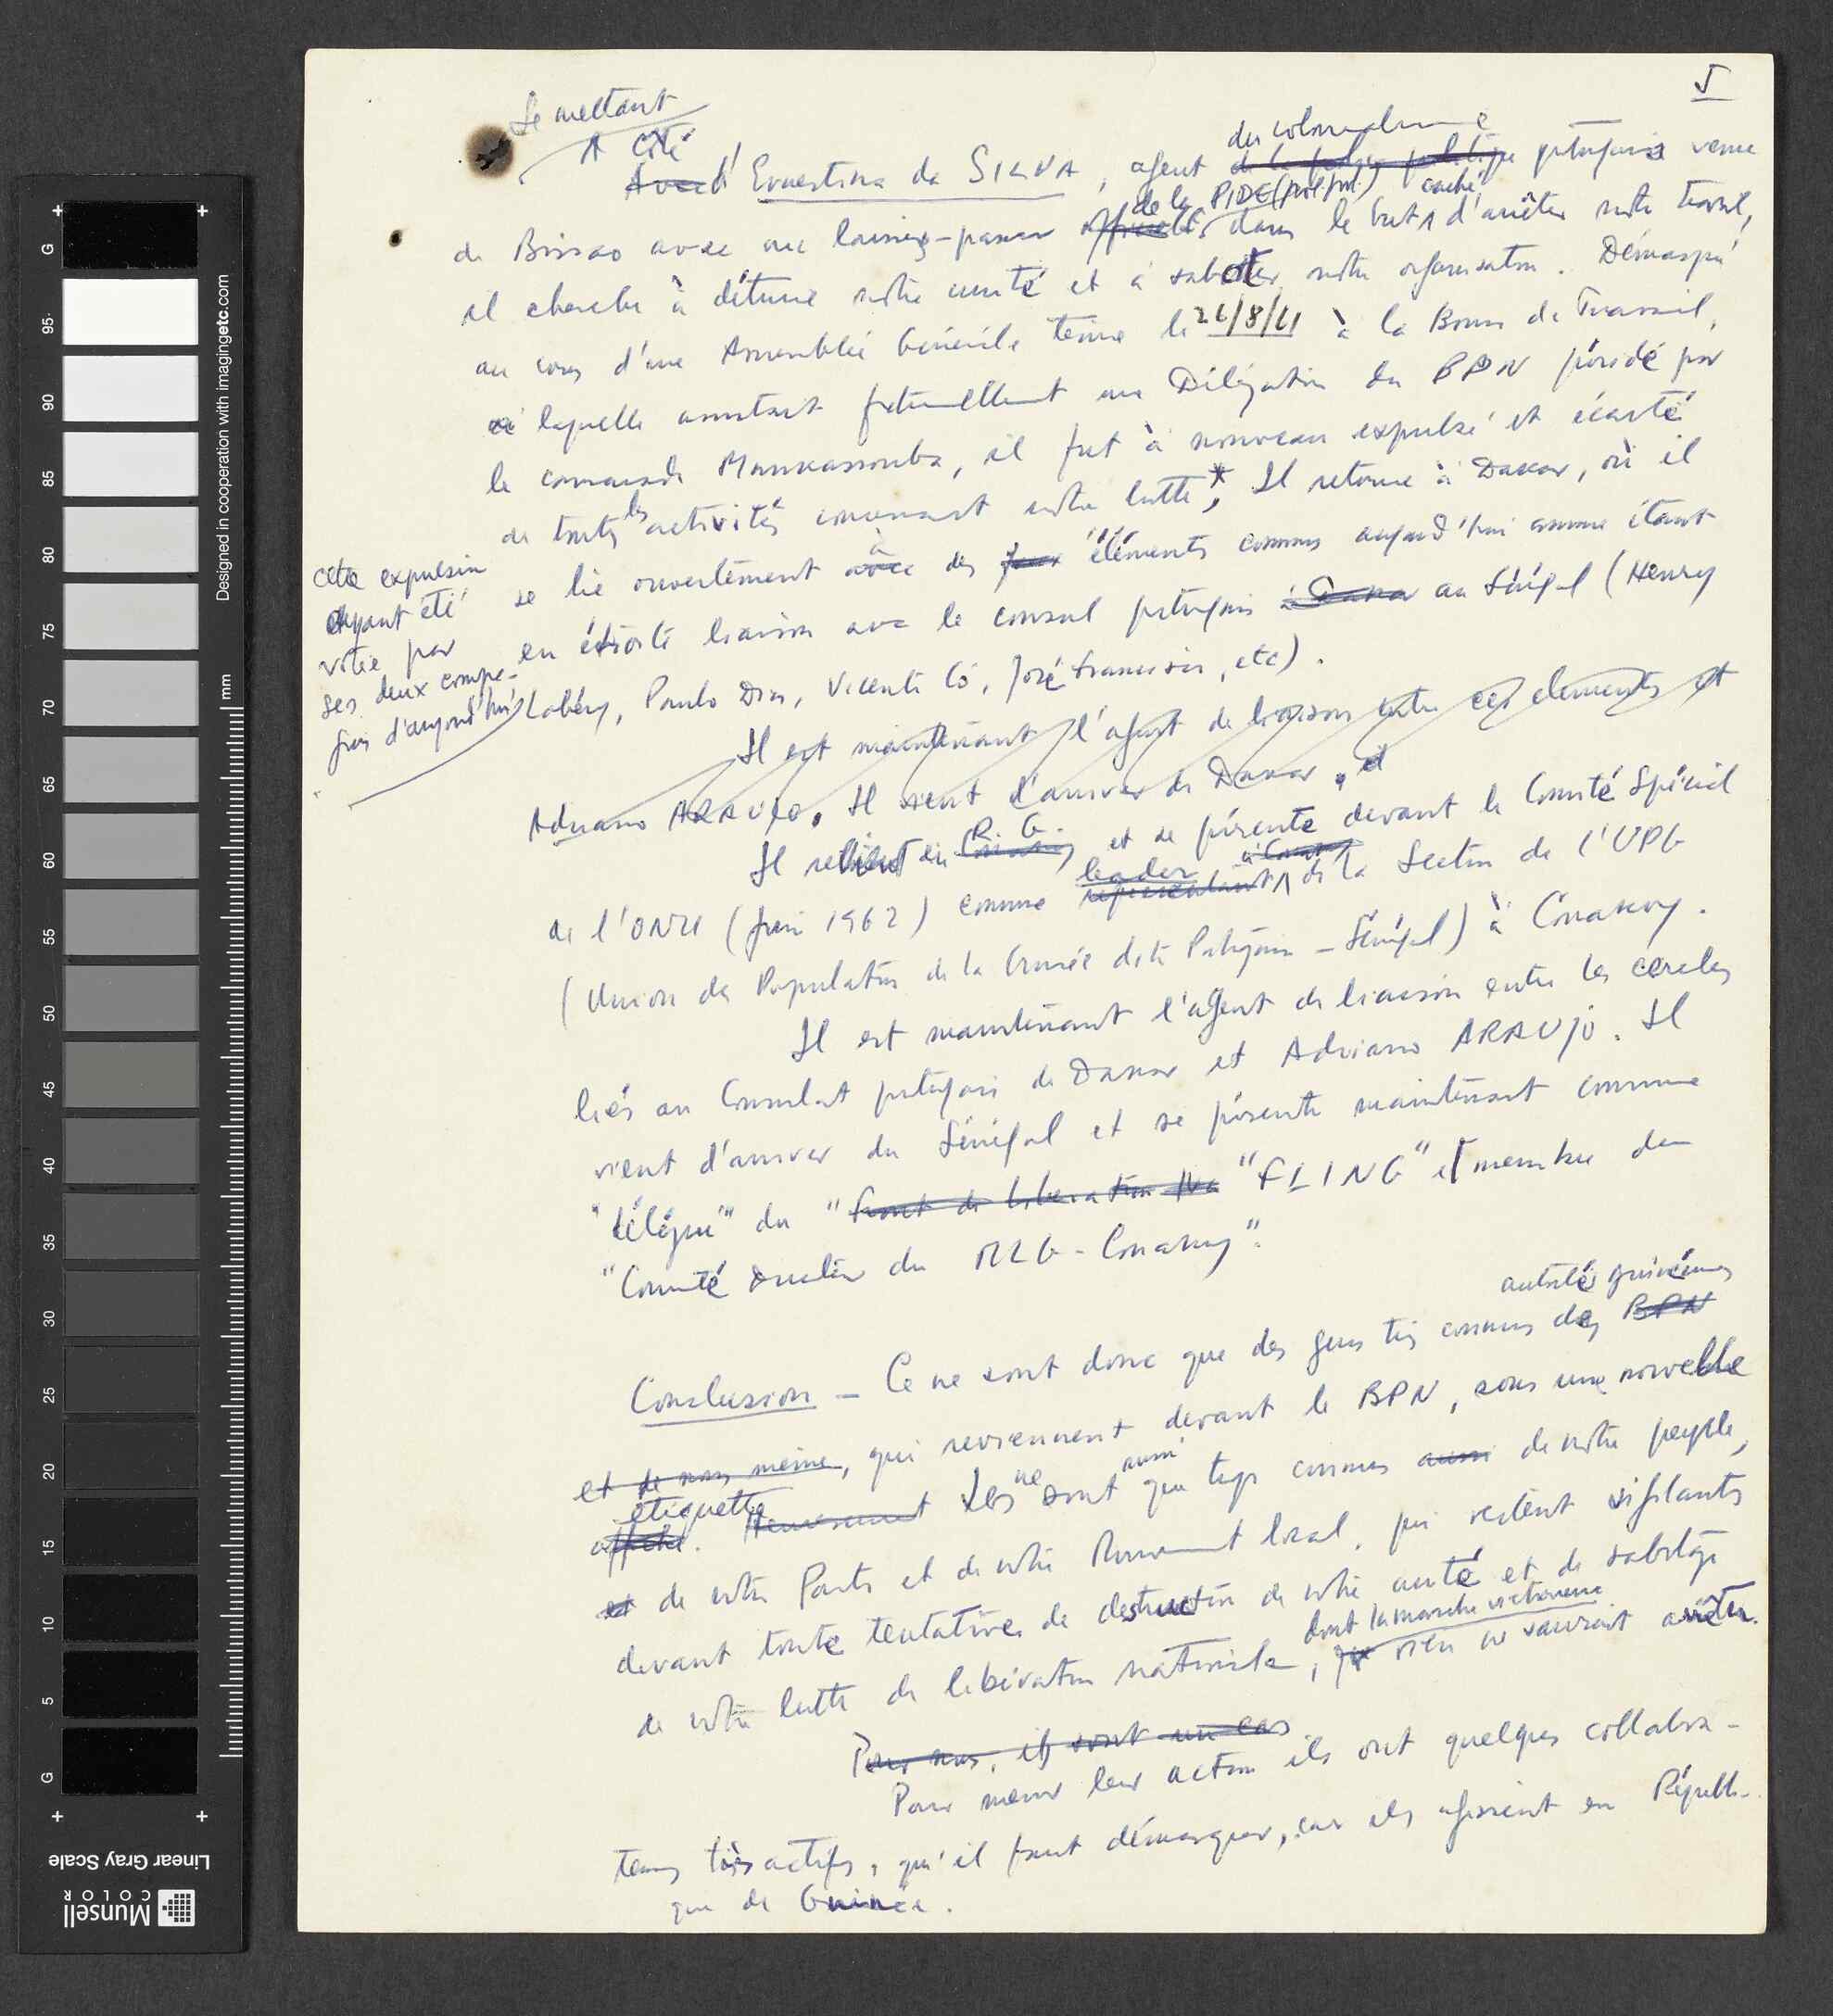 5
Se mettant
A côté
Avec d'Ernestina da SILVA, agent de la police politique du colonialisme portugais venue
de Bissao avec un laissez-passer officiel de la PIDE (pol. pol.) dans le but caché d'arrêter notre travail,
il cherche à détruire notre unité et à saboter notre organisation. Démasqué
au cours d'une Assemblée Générale tenue le 26/8/61 à la Bourse de Travail,
à laquelle assistait fraternellement une Délégation du BPN présidé par
le camarade Mankassouba, il fut à nouveau expulsé et écarté
de toutes les activités concernant notre lutte*, Il retourne à Dakar, où il
se lie ouvertement avec à des éléments connus aujourd'hui comme étant
en étroite liaison avec le consul portugais à Dakar au Sénégal (Henry
Labéry, Paulo Dias, Vicente Có, José Francisco, etc).
cette expulsion
ayant été
votée par
ses deux compa-
gnons d'aujourd'hui
Il est maintenant l'agent de liaison entre ces elements et
Adriano ARAUJO. Il vient d'arriver de Dakar, et
Il revient en Conakry R. G. et se présente devant le Comité Spécial
de l'ONU (Juin 1962) comme représentant leader à Conakry de la Section de l'UPG
(Union des Populations de la Guinée dite Portugaise - Sénégal) à Conakry.
Il est maintenant l'agent de liaison entre les cercles
liés au Consulat portugais de Dakar et Adriano ARAUJO. Il
vient d'arriver du Sénégal et se présente maintenant comme
"délégué" du "Front de Libération Na "FLING" et membre du
"Comité Directeur du MLG-Conakry".
Conclusion - Ce ne sont donc que des gens très connus des BPN autorités guinéennes
et de nous même, qui reviennent devant le BPN, sous une nouvelle
affiche étiquette. Heureusement Ils ne sont aussi que trop connus aussi de notre peuple,
et de notre Parti et de notre Mouvement local, qui restent vigilants
devant toute tentative de destruction de notre unité et de sabotage
de notre lutte de libération nationale, dont la marche victorieuse rien ne saurait arrêter.
Pour nous, ils sont un cas
Pour mener leur action ils ont quelques collabora-
teurs très actifs, qu'il faut démasquer, car ils agissent en Républi-
que de Guinée.
Designed in cooperation with imagingetc.com
mm
G 95 90 85 80 75 70 65 60 55 50 45 40 35 30 25 20 15 10 5 G
Munsell
COLOR
Linear Gray Scale